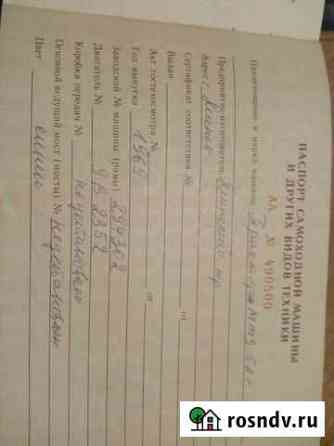 ПАСПОРТ САМОХОДНОЙ МАШИНЫ
И ДРУГИХ ВИДОВ ТЕХНИКИ
АА № 490500
Наименование и марка машины Трактор МТЗ 50
Предприятие-изготовитель Минский тр
Адрес г. Минск
Сертификат соответствия № от
Выдан
Акт гостехосмотра № от
Год выпуска 1969
Заводской № машины (рамы)
Двигатель №
Коробка передач №
Основной ведущий мост (мосты) №
Цвет синий
rosndv.ru